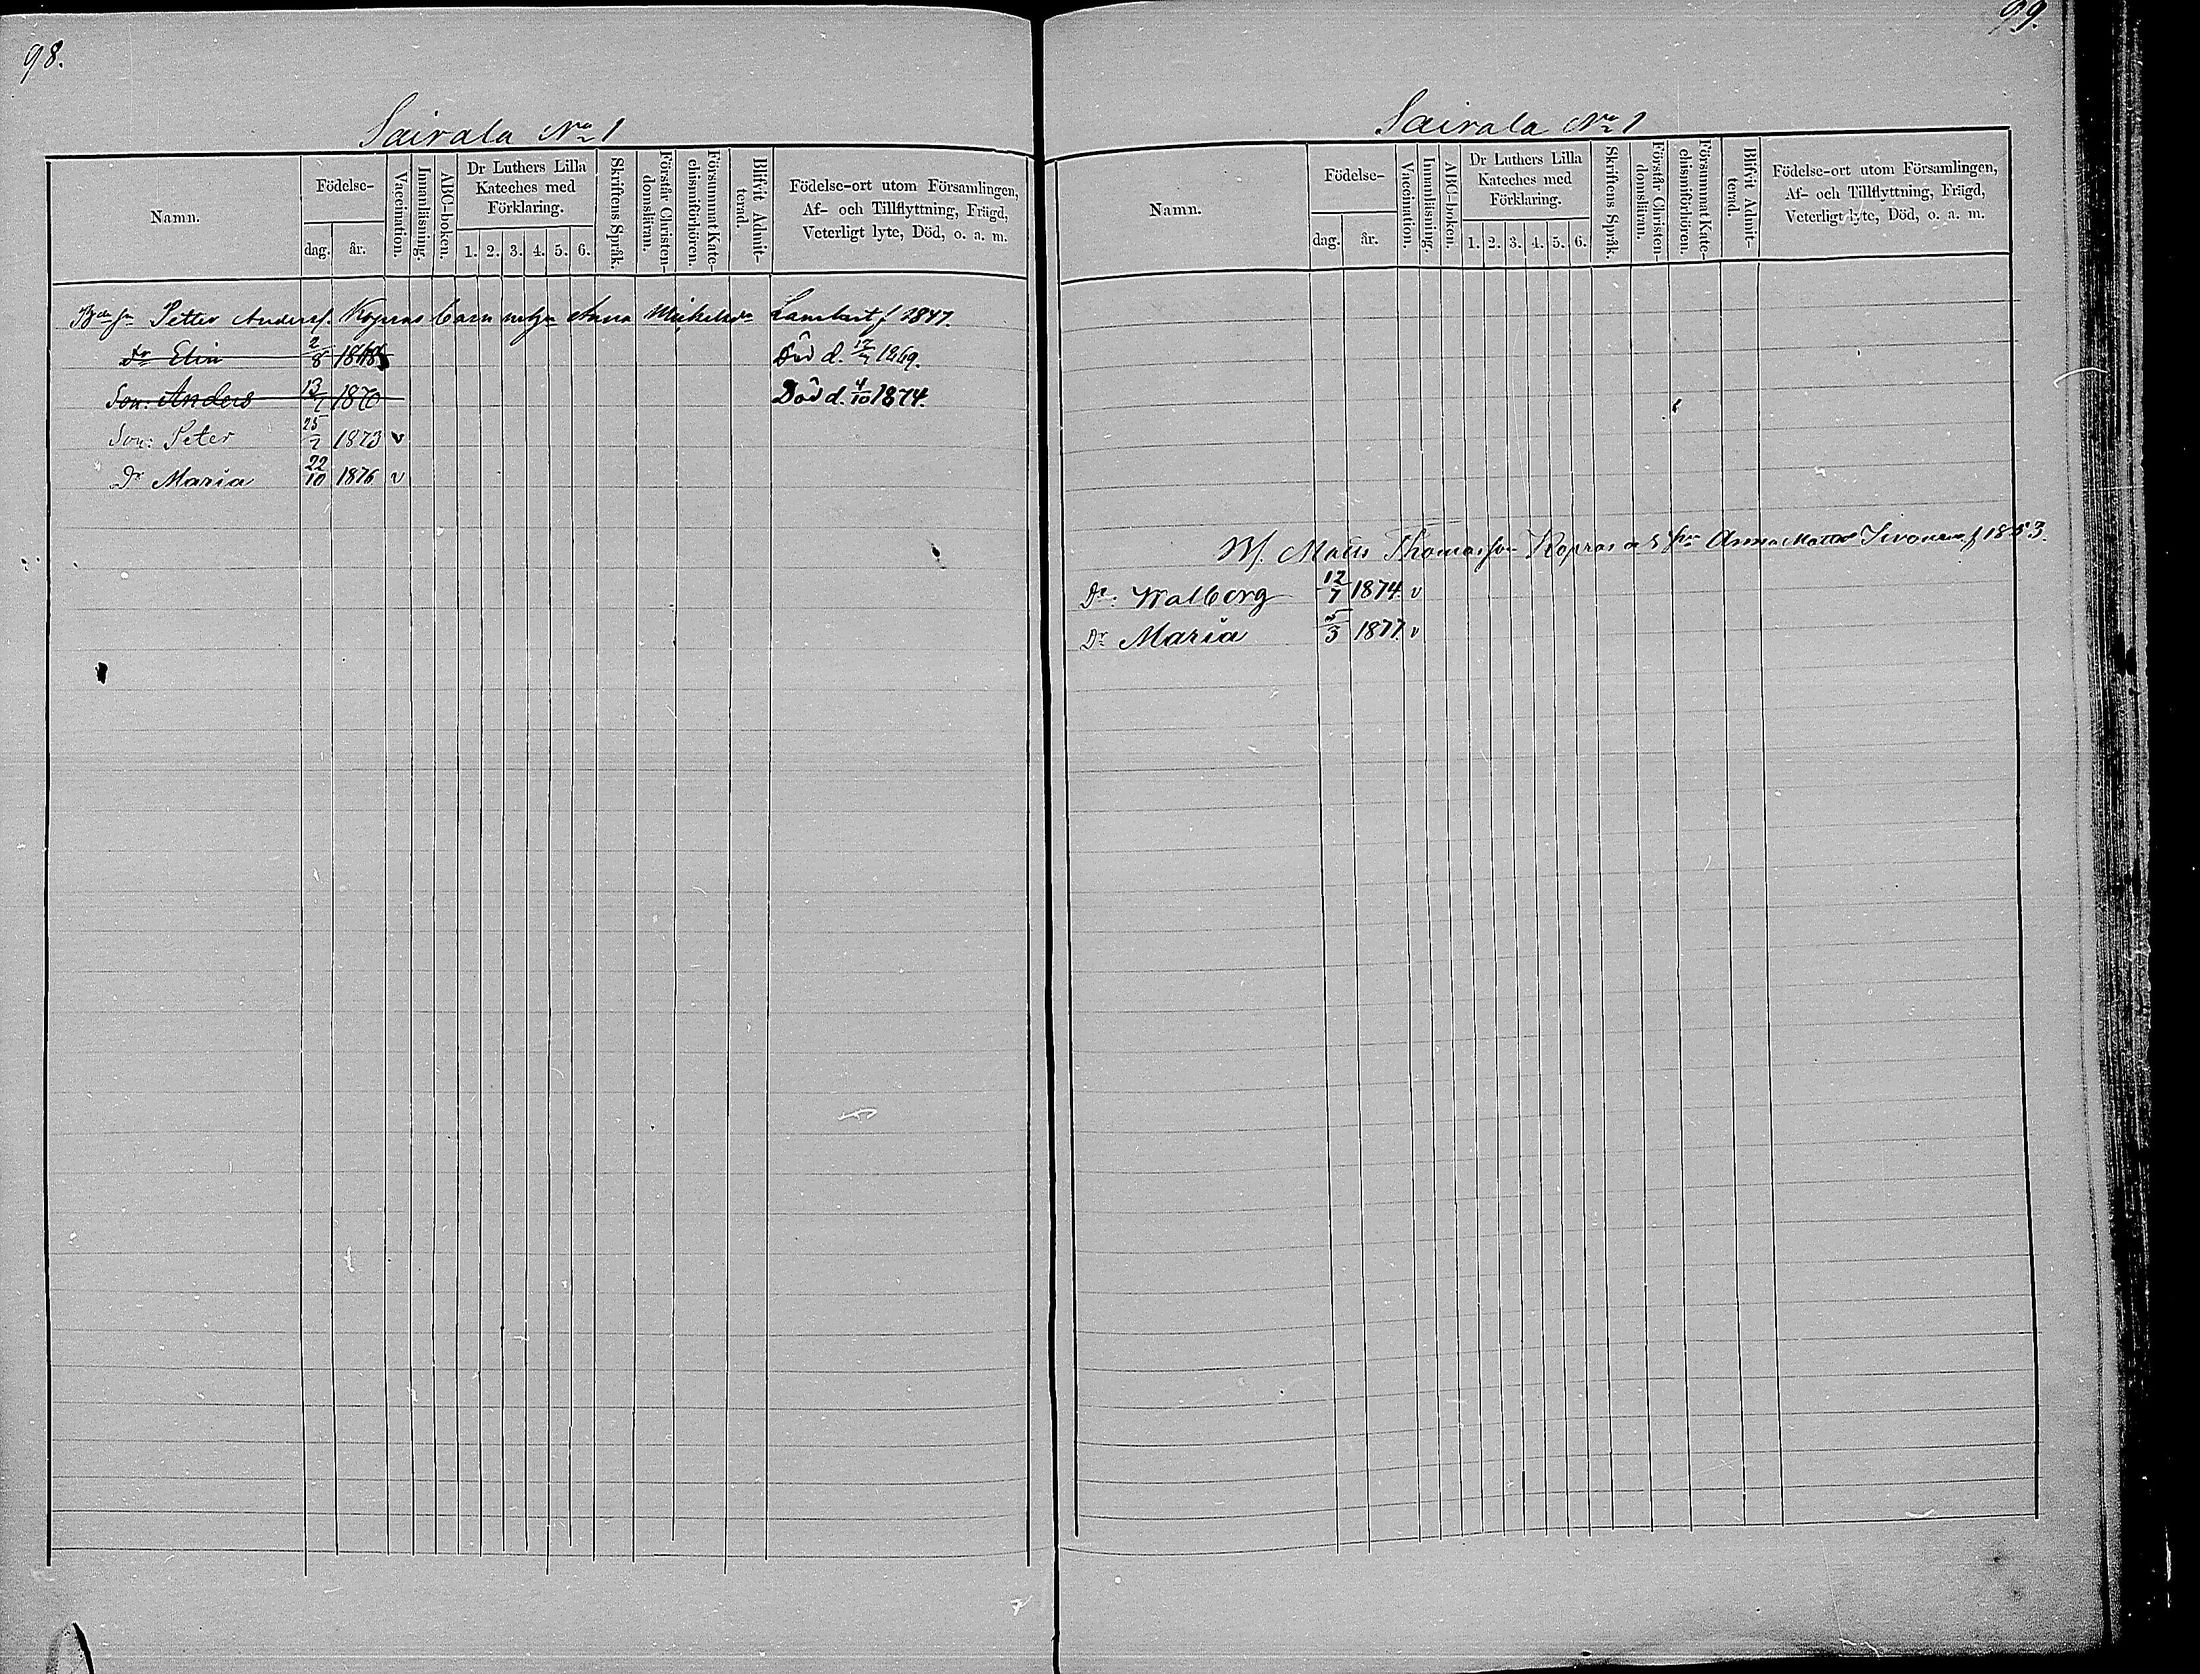 98.
Sairala No 1
Namn.
Födelse-
dag.
år.
Vaccination.
Innanläsning.
ABC-boken.
Dr Luthers Lilla
Kateches med
Förklaring.
1. 2. 3. 4. 5. 6.
Skriftens Språk.
Förstår Christen-
domsläran.
Försummat Kate-
chismiförhören.
Blifvit Admit-
terad.
Födelse-ort utom Församlingen,
Af- och Tillflyttning, Frägd,
Veterligt lyte, Död, o. a. m.
Petter Anders. Kopras barn m hu Anna Michelsdr f 1847.
Dr Elin 2/8 1868 Död d. 12/7 1869.
Son: Anders 13/7 1870 Död d. 4/10 1874.
Son: Peter 25/7 1873 v
Dr Maria 22/10 1876 v
99.
Sairala No 1
Namn.
Födelse-
dag.
år.
Vaccination.
Innanläsning.
ABC-boken.
Dr Luthers Lilla
Kateches med
Förklaring.
1. 2. 3. 4. 5. 6.
Skriftens Språk.
Förstår Christen-
domsläran.
Försummat Kate-
chismiförhören.
Blifvit Admit-
terad.
Födelse-ort utom Församlingen,
Af- och Tillflyttning, Frägd,
Veterligt lyte, Död, o. a. m.
Matts Thomasson Kopras Anna Matts f 1853.
Dr: Walborg 12/7 1874 v
Dr Maria 5/3 1877. v